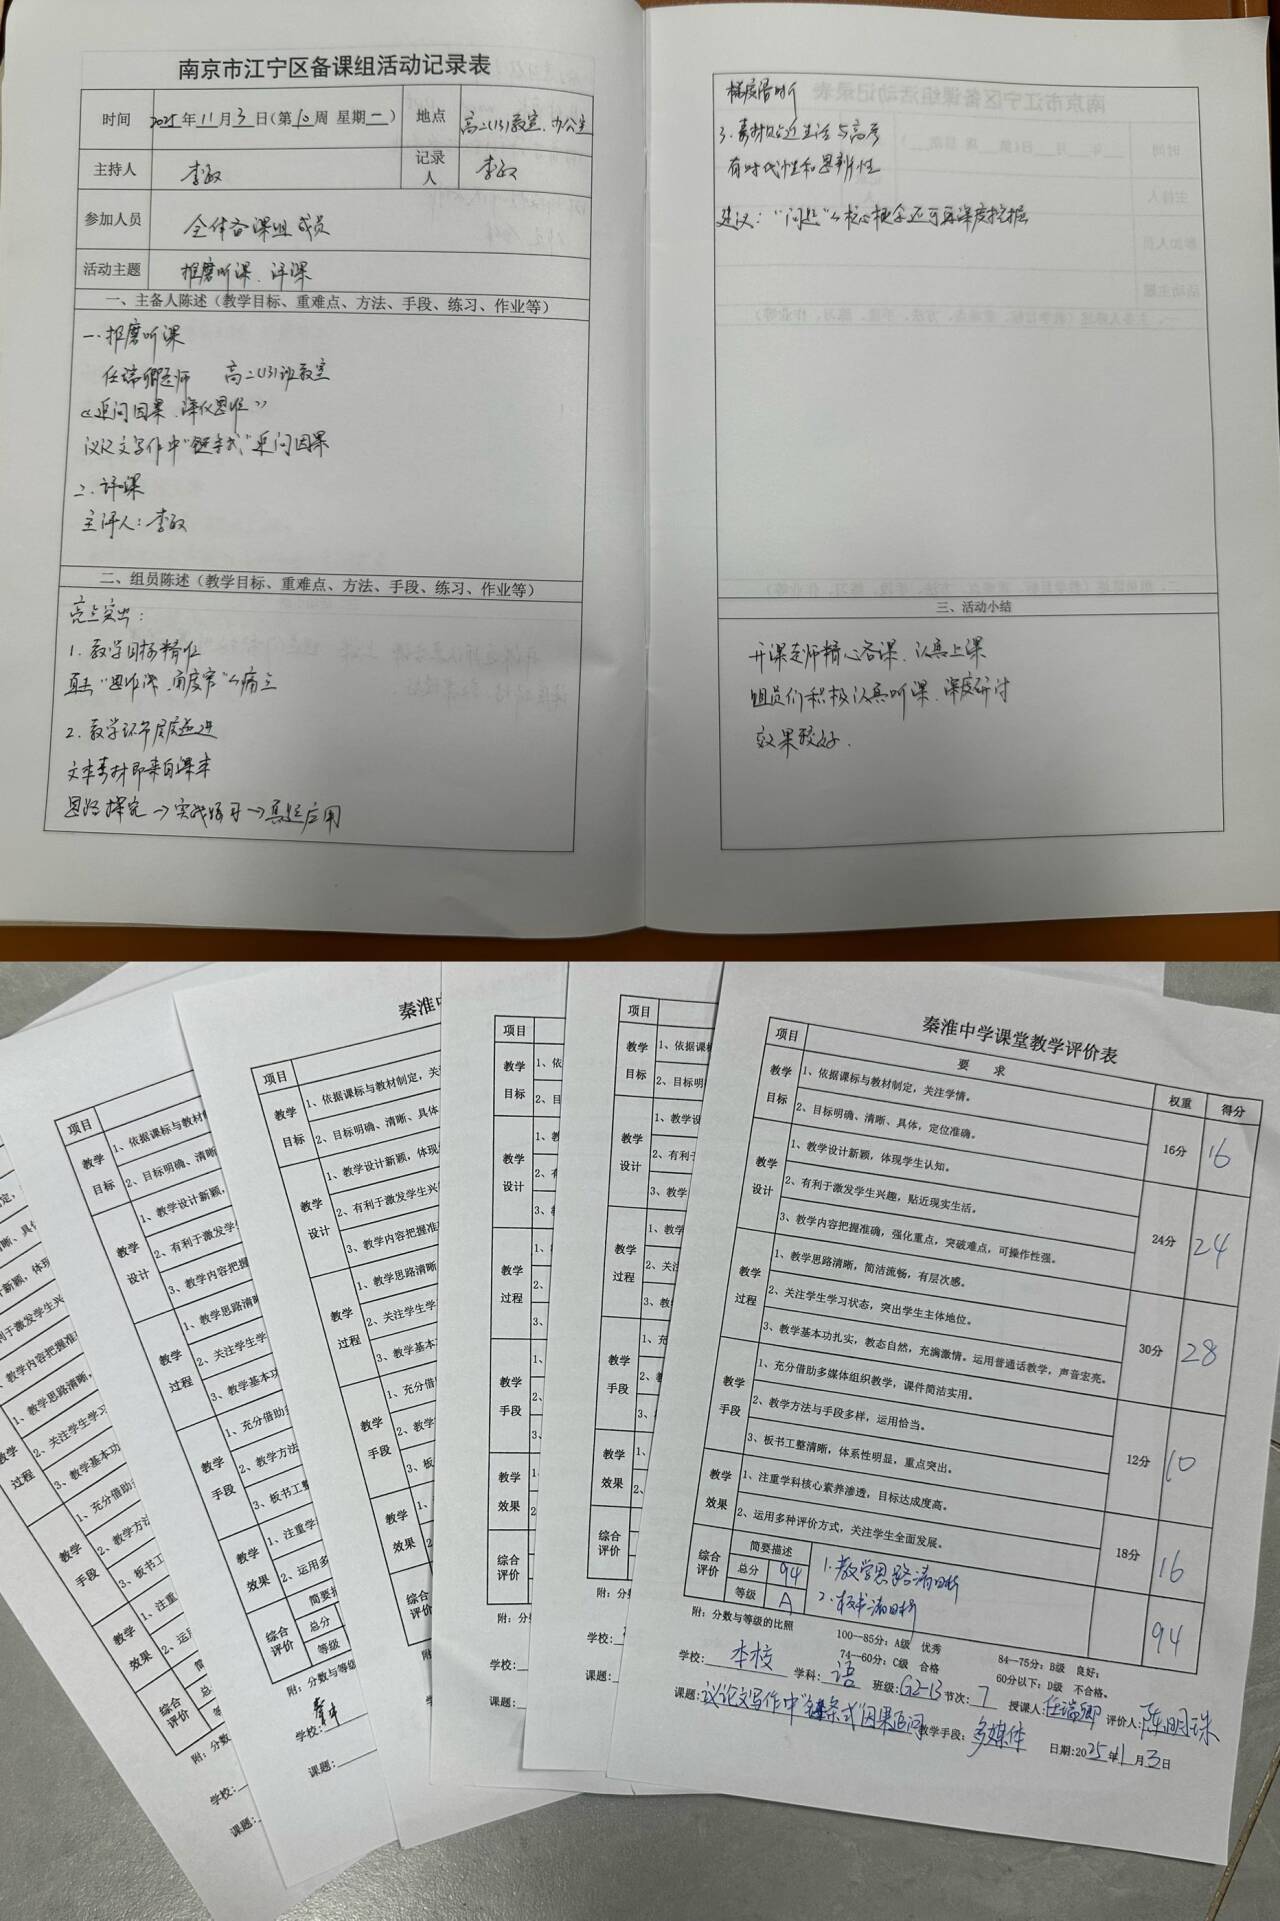 南京市江宁区备课组活动记录表
时间 2025年11月3日(第10周 星期一) 地点 高二(13)教室、办公室
主持人 李敏 记录人 李敏
参加人员 全体备课组成员
活动主题 推磨听课、评课
一、主备人陈述（教学目标、重难点、方法、手段、练习、作业等）
一. 推磨听课
任瑞卿老师 高二(13)班教室
《追问因果、深化思维》
议论文写作中"链条式"追问因果
二. 评课
主评人：李敏
二、组员陈述（教学目标、重难点、方法、手段、练习、作业等）
亮点突出：
1. 教学目标精准
直击"思维浅、角度窄"的痛点
2. 教学环节层层递进
文本素材即来自课本
思路探究→实战练习→真题应用
梯度清晰
3. 素材贴近生活与高考
有时代性和思辨性
建议："问题"的核心概念还可再深度挖掘
三、活动小结
开课老师精心备课、认真上课
组员们积极认真听课、深度研讨
效果较好.
秦淮中学课堂教学评价表
项目 要求 权重 得分
教学目标 1、依据课标与教材制定，关注学情。
2、目标明确、清晰、具体，定位准确。
16分 16
教学设计 1、教学设计新颖，体现学生认知。
2、有利于激发学生兴趣，贴近现实生活。
3、教学内容把握准确，强化重点，突破难点，可操作性强。
24分 24
教学过程 1、教学思路清晰，简洁流畅，有层次感。
2、关注学生学习状态，突出学生主体地位。
3、教学基本功扎实，教态自然，充满激情。运用普通话教学，声音宏亮。
30分 28
教学手段 1、充分借助多媒体组织教学，课件简洁实用。
2、教学方法与手段多样，运用恰当。
3、板书工整清晰，体系性明显，重点突出。
12分 10
教学效果 1、注重学科核心素养渗透，目标达成度高。
2、运用多种评价方式，关注学生全面发展。
18分 16
综合评价 简要描述
总分 94
等级 A
1. 教学思路清晰
2. 板书清晰
94
附：分数与等级的比照
100—85分：A级 优秀
84—75分：B级 良好；
74—60分：C级 合格
60分以下：D级 不合格。
学校：本校 学科：语 班级：G2-13 节次：7 授课人：任瑞卿 评价人：陈明珠
课题：议论文写作中"链条式"因果追问 教学手段：多媒体 日期：2025年11月3日